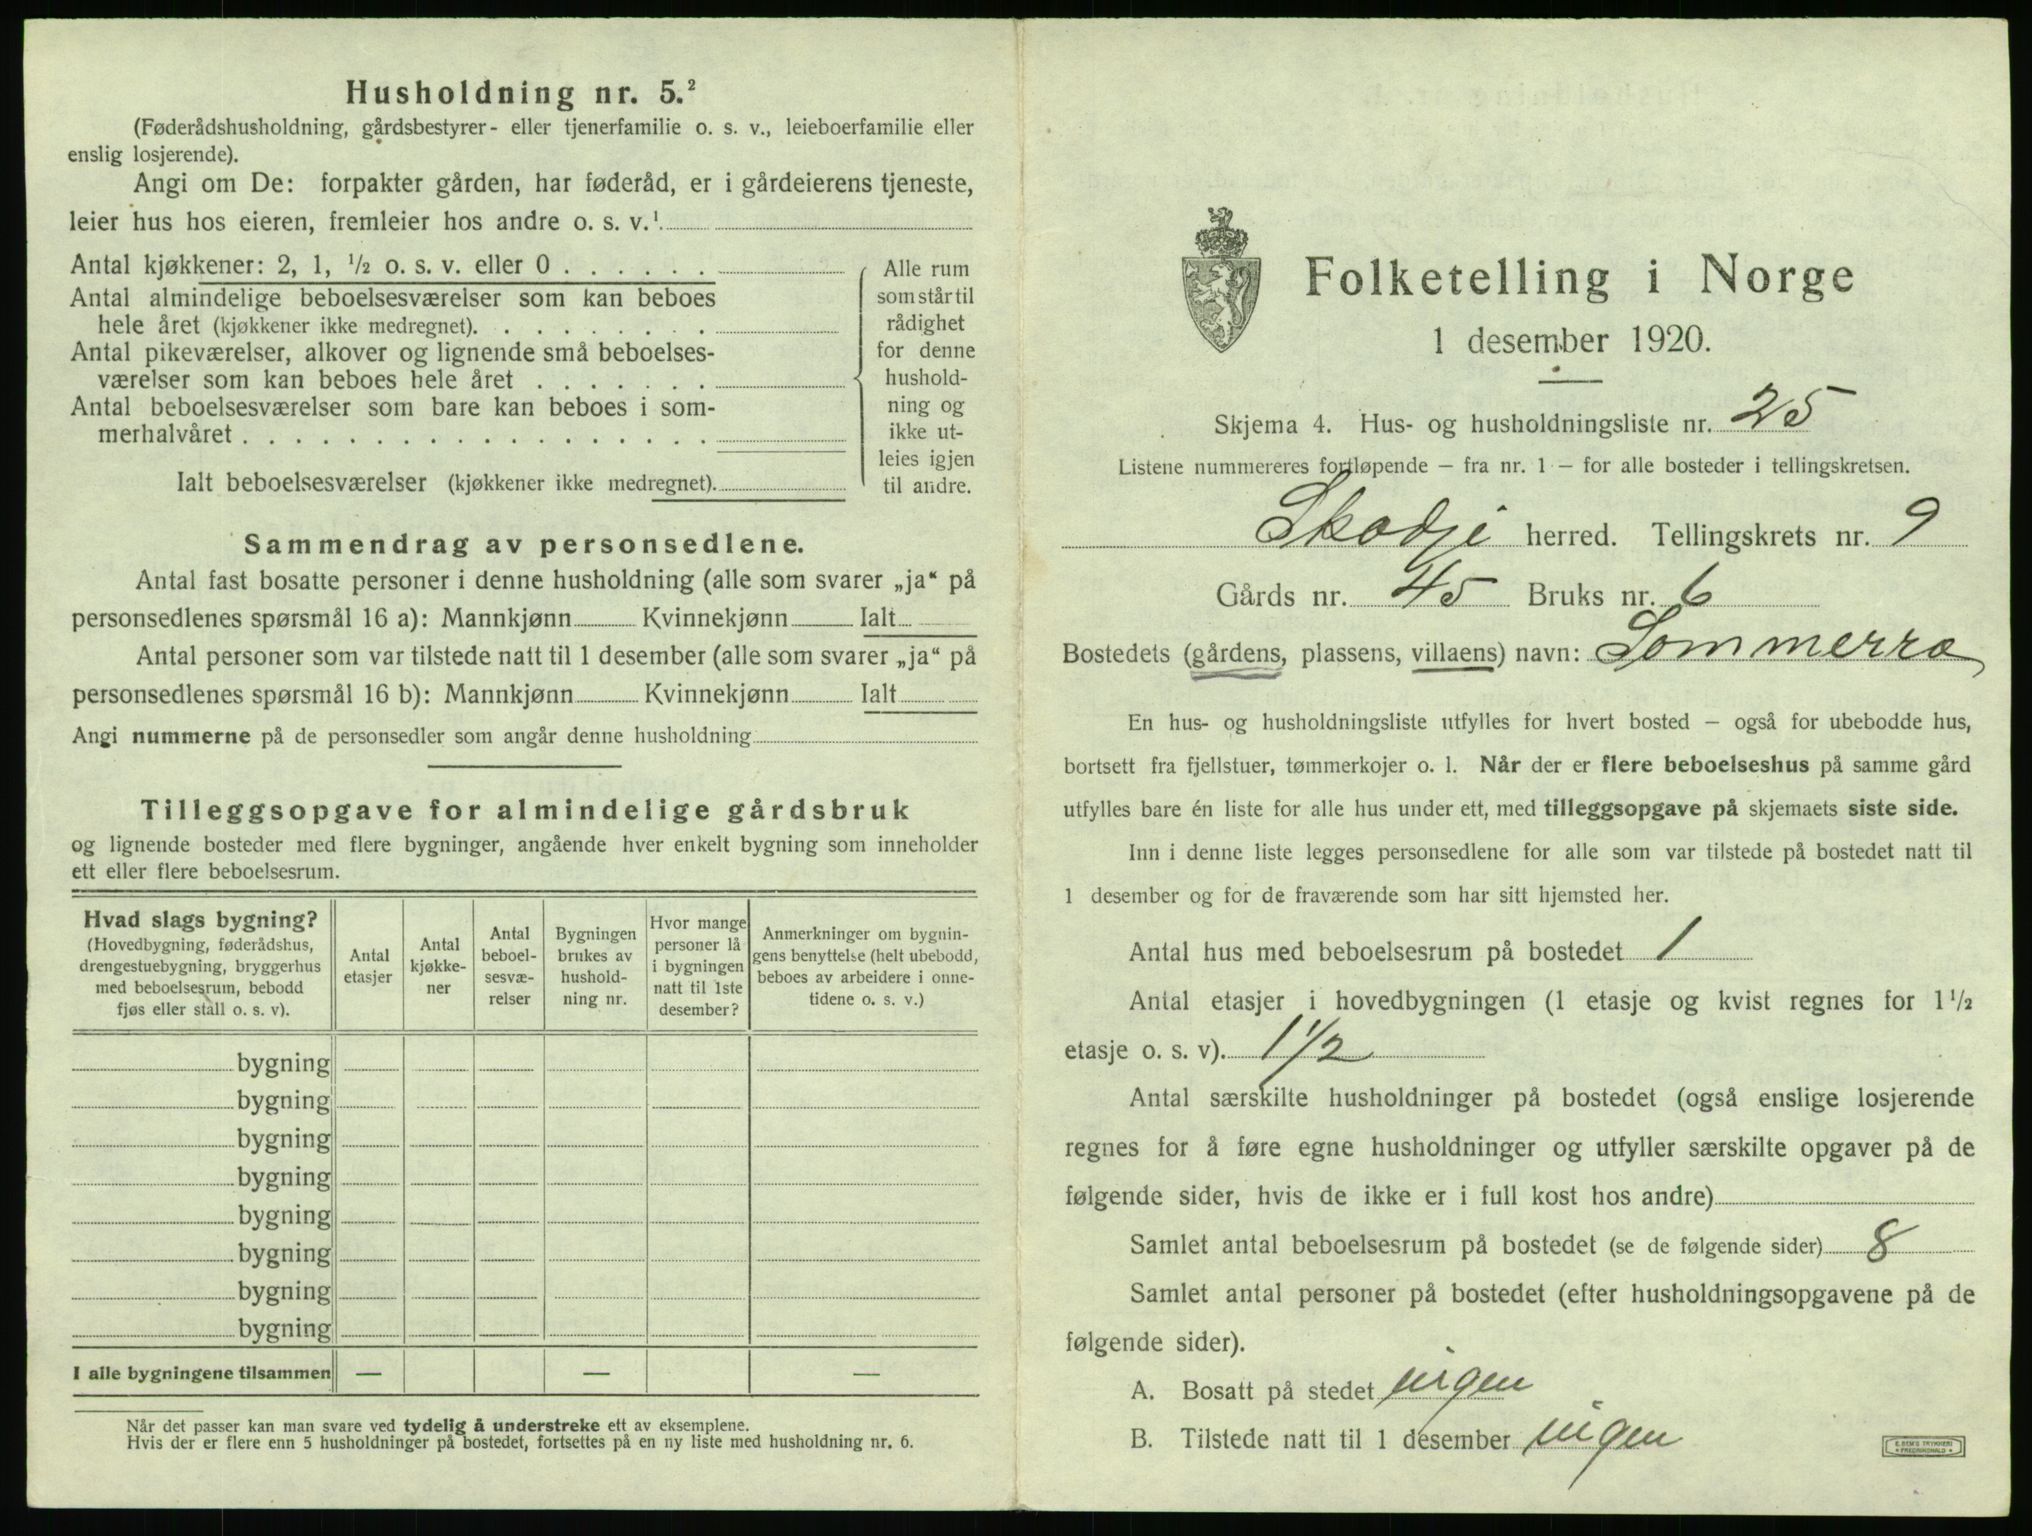 Husholdning nr. 5.²
(Føderådshusholdning, gårdsbestyrer- eller tjenerfamilie o. s. v., leieboerfamilie eller
enslig losjerende).
Angi om De: forpakter gården, har føderåd, er i gårdeierens tjeneste,
leier hus hos eieren, fremleier hos andre o. s. v.¹
Antal kjøkkener: 2, 1, ½ o. s. v. eller 0 . . . . . .
Antal almindelige beboelsesværelser som kan beboes
hele året (kjøkkener ikke medregnet). . . . . . . . .
Antal pikeværelser, alkover og lignende små beboelses-
værelser som kan beboes hele året . . . . . . .
Antal beboelsesværelser som bare kan beboes i som-
merhalvåret . . . . . . . . . . . . . . . . . .
Ialt beboelsesværelser (kjøkkener ikke medregnet).
Alle rum
som står til
rådighet
for denne
hushold-
ning og
ikke ut-
leies igjen
til andre.
Sammendrag av personsedlene.
Antal fast bosatte personer i denne husholdning (alle som svarer „ja“ på
personsedlenes spørsmål 16 a): Mannkjønn Kvinnekjønn Ialt
Antal personer som var tilstede natt til 1 desember (alle som svarer „ja“ på
personsedlenes spørsmål 16 b): Mannkjønn Kvinnekjønn Ialt
Angi nummerne på de personsedler som angår denne husholdning
Tilleggsopgave for almindelige gårdsbruk
og lignende bosteder med flere bygninger, angående hver enkelt bygning som inneholder
ett eller flere beboelsesrum.
Hvad slags bygning?
(Hovedbygning, føderådshus,
drengestuebygning, bryggerhus
med beboelsesrum, bebodd
fjøs eller stall o. s. v).
Antal
etasjer
Antal
kjøkke-
ner
Antal
beboel-
sesvæ-
relser
Bygningen
brukes av
hushold-
ning nr.
Hvor mange
personer lå
i bygningen
natt til 1ste
desember?
Anmerkninger om bygnin-
gens benyttelse (helt ubebodd,
beboes av arbeidere i onne-
tidene o. s. v.)
bygning
bygning
bygning
bygning
bygning
bygning
bygning
bygning
I alle bygningene tilsammen — — —
Når det passer kan man svare ved tydelig å understreke ett av eksemplene.
Hvis der er flere enn 5 husholdninger på bostedet, fortsettes på en ny liste med husholdning nr. 6.
Folketelling i Norge
1 desember 1920.
Skjema 4. Hus- og husholdningsliste nr. 25
Listene nummereres fortløpende – fra nr. 1 – for alle bosteder i tellingskretsen.
Skodje herred. Tellingskrets nr. 9
Gårds nr. 45 Bruks nr. 6
Bostedets (gårdens, plassens, villaens) navn: Sommerro
En hus- og husholdningsliste utfylles for hvert bosted – også for ubebodde hus,
bortsett fra fjellstuer, tømmerkojer o. l. Når der er flere beboelseshus på samme gård
utfylles bare én liste for alle hus under ett, med tilleggsopgave på skjemaets siste side.
Inn i denne liste legges personsedlene for alle som var tilstede på bostedet natt til
1 desember og for de fraværende som har sitt hjemsted her.
Antal hus med beboelsesrum på bostedet 1
Antal etasjer i hovedbygningen (1 etasje og kvist regnes for 1½
etasje o. s. v). 1 1/2
Antal særskilte husholdninger på bostedet (også enslige losjerende
regnes for å føre egne husholdninger og utfyller særskilte opgaver på de
følgende sider, hvis de ikke er i full kost hos andre)
Samlet antal beboelsesrum på bostedet (se de følgende sider) 8
Samlet antal personer på bostedet (efter husholdningsopgavene på de
følgende sider).
A. Bosatt på stedet ingen
B. Tilstede natt til 1 desember ingen
E. SEM'S TRYKKERI
• FREDRIKSHALD •